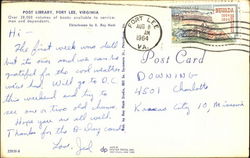 POST LIBRARY, FORT LEE, VIRGINIA
Over 28,000 volumes of books available to service
men and dependents.
FORT LEE
AUG
1964
VA.
NEVADA
Post Card
Hi —
The first week was dull
but its over and we can be
grateful for the cool weather
we've had. Will go to D.C.
this weekend and try to
see an old
Hope you are all well.
Thanks for the D-Day card.
Love, Jed
DOWNING
4501 Charlotte
Kansas City 10, Missouri